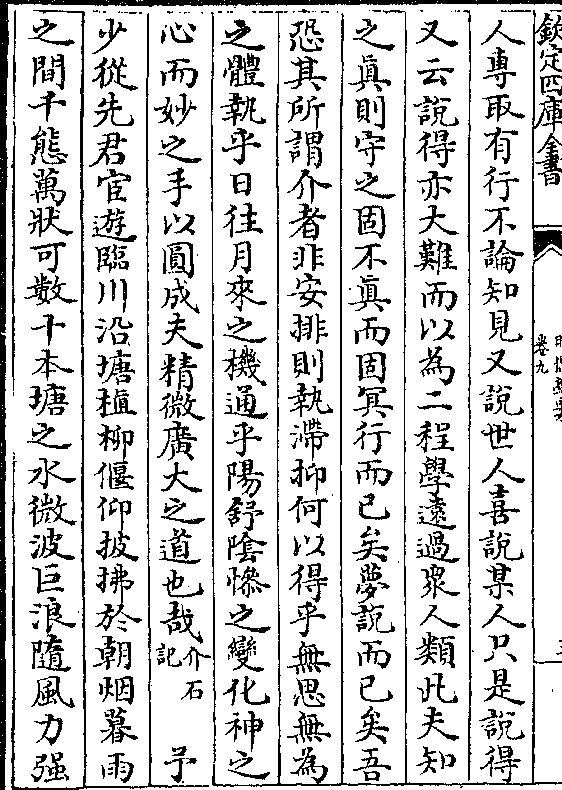 欽定四庫全書
卷九
人專取有行不論知見又說世人喜說某人只是說得
又云說得亦大難而以為二程學遠過衆人類此夫知
之眞則守之固不眞而固冥行而已矣夢說而已矣吾
恐其所謂介者非安排則執滯抑何以得乎無思無為
之體執乎日往月來之機通乎陽舒陰慘之變化神之
心而妙之手以圓成夫精微廣大之道也哉介石記　予
少從先君宦遊臨川沿塘植柳偃仰披拂於朝烟暮雨
之間千態萬狀可數十本塘之水微波巨浪隨風力强